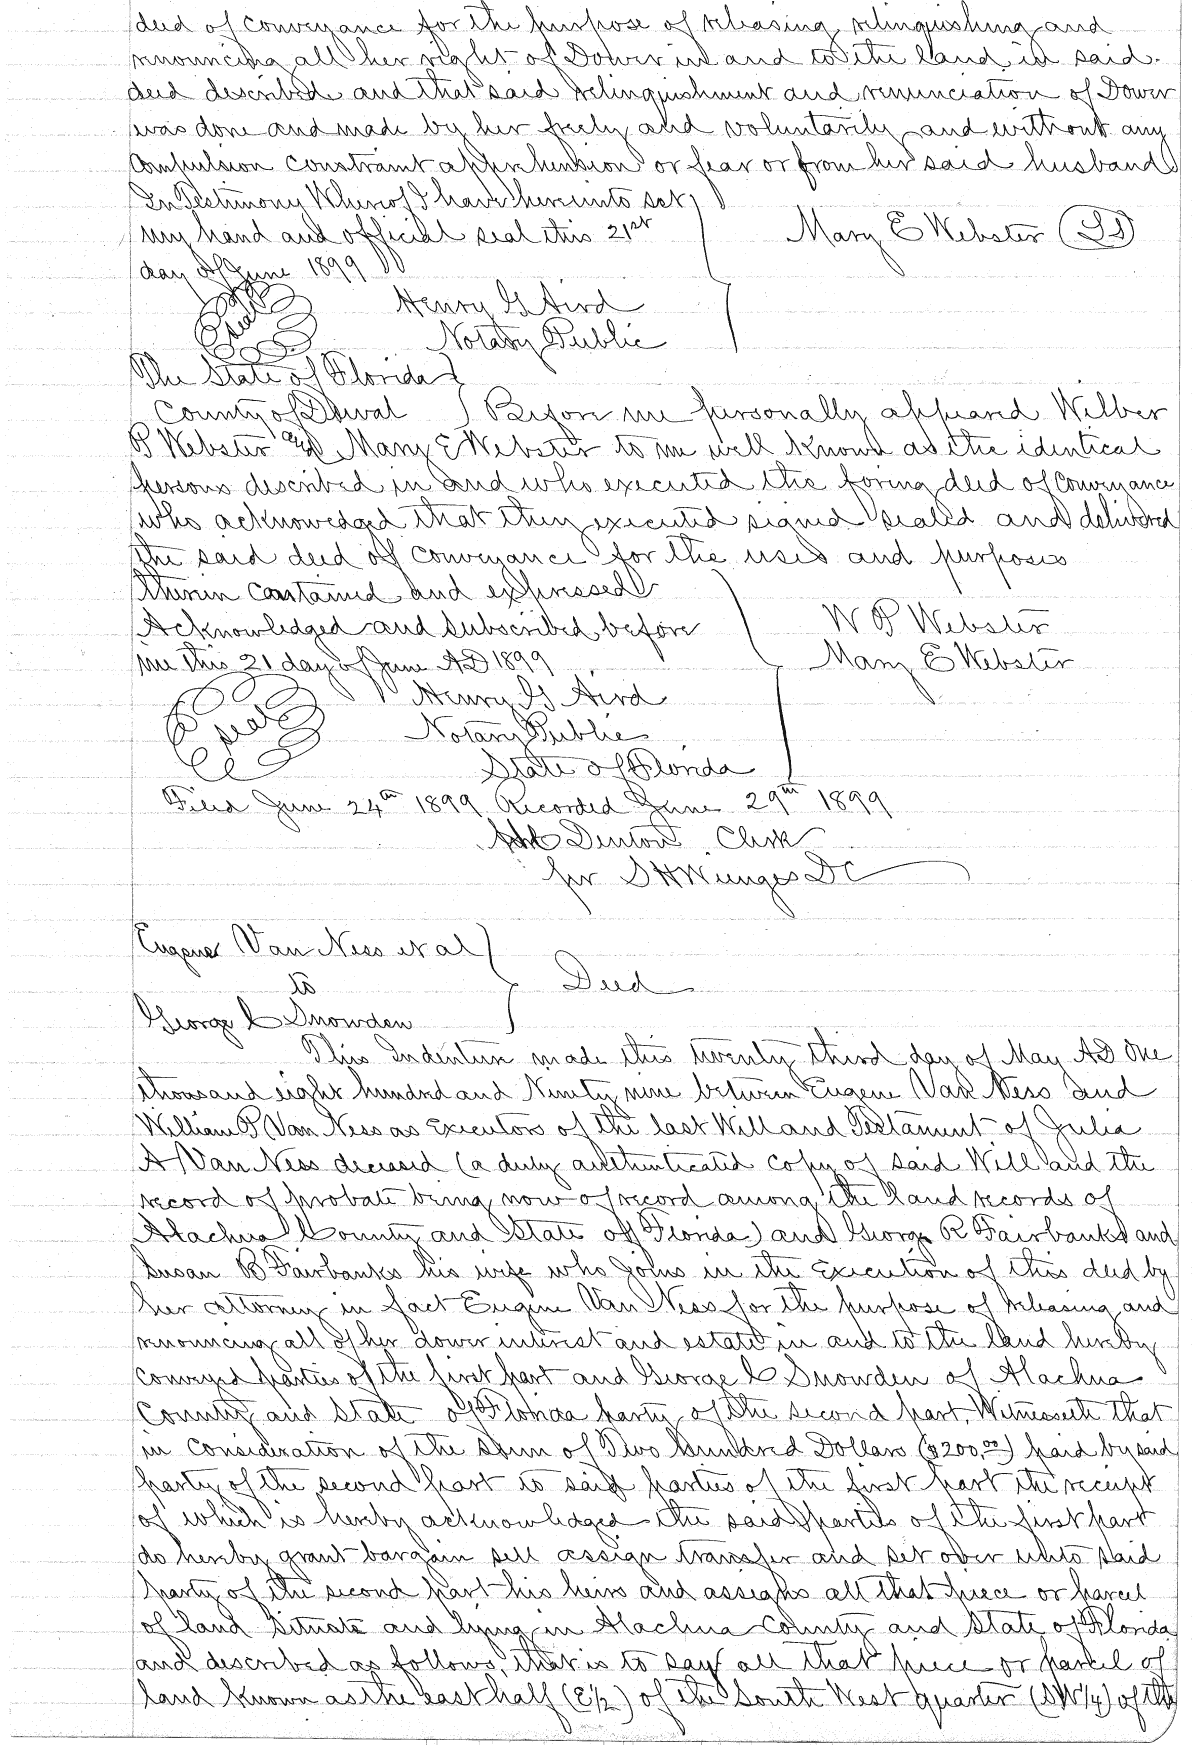 deed of Conveyance for the purpose of releasing relinquishing and
renouncing all her right of Dower in and to the land in said
deed described and that said relinquishment and renunciation of Dower
was done and made by her freely and voluntarily and without any
Compulsion Constraint apprehension or fear or from her said husband
In Testimony Whereof I have hereunto set
my hand and official seal this 21st
Mary E Webster (LS)
day of June 1899
seal
Henry G Aird
Notary Public
The State of Florida
County of Duval Before me personally appeared Wilber
P Webster and Mary E Webster to me well known as the identical
persons described in and who executed the foring deed of Conveyance
who acknowedged that they executed signed sealed and delivered
the said deed of Conveyance for the uses and purposes
therein contained and expressed
Acknowledged and subscribed before
W P Webster
me this 21 day of June AD 1899
Mary E Webster
seal
Henry G Aird
Notary Public
State of Florida
Filed June 24th 1899 Recorded June 29th 1899
Denton Clerk
per S H Wienges DC
Eugene Van Ness et al
to
Deed
George C Snowden
This Indenture made this twenty third day of May AD One
thousand eight hundred and Ninety nine between Eugene Van Ness and
William P Van Ness as Executors of the last Will and Testament of Julia
A Van Ness deceased (a duly authenticated copy of said Will and the
record of probate being now of record among the land records of
Alachua County and State of Florida) and George R Fairbanks and
Susan B Fairbanks his wife who joins in the execution of this deed by
her attorney in fact Eugene Van Ness for the purpose of releasing and
renouncing all of her dower interest and estate in and to the land hereby
conveyed parties of the first part and George C Snowden of Alachua
County and State of Florida party of the second part, Witnesseth that
in consideration of the sum of Two Hundred Dollars ($200.00) paid by said
party of the second part to said parties of the first part the receipt
of which is hereby acknowledged the said parties of the first part
do hereby grant bargain sell assign transfer and set over unto said
party of the second part his heirs and assigns all that piece or parcel
of land situate and lying in Alachua County and State of Florida
and described as follows, that is to say all that piece or parcel of
land known as the east half (E1/2) of the South West quarter (SW1/4) of the